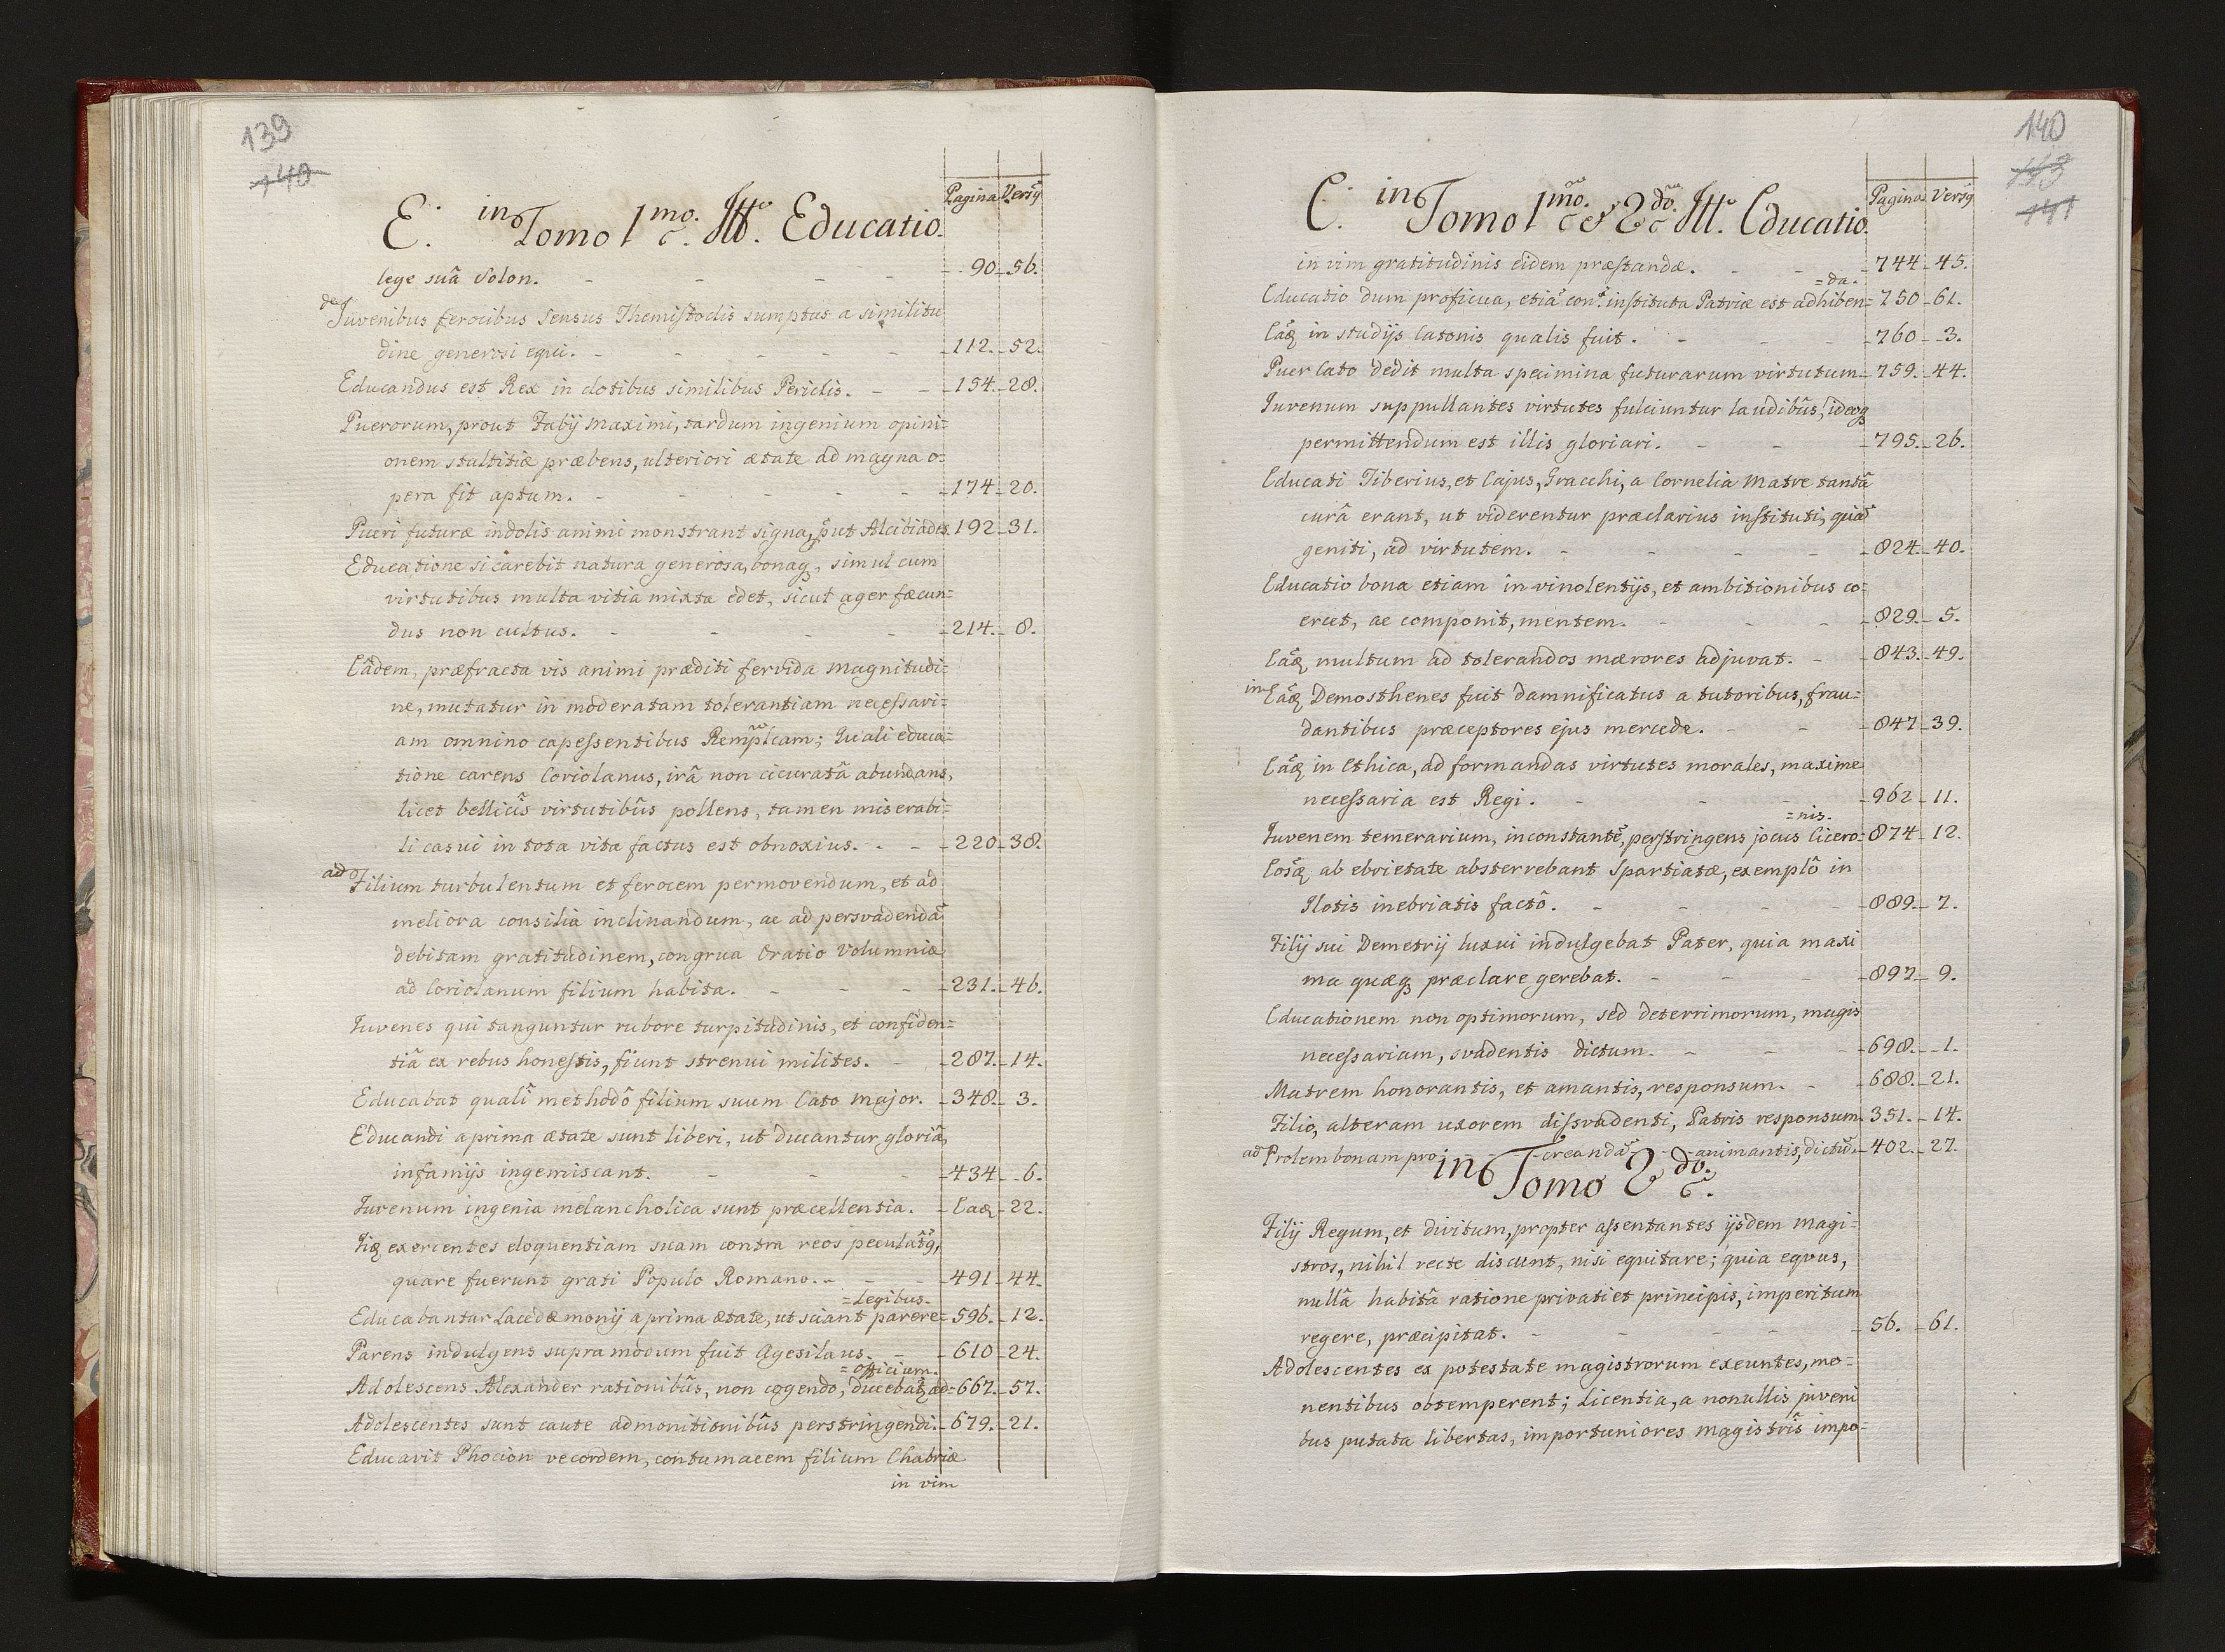 139
140
E. in Tomo 1mo. Ltto. Educatio.
Pagina Versq
lege suâ Solon. - - - - 90. 56.
de Juvenibus ferocibus sensus Themistoclis sumptus a similitu
dine generosi equi. - - - - - 112. 52.
Educandus est Rex in dotibus similibus Periclis. - - 154. 28.
Puerorum, prout Fabij Maximi, tardum ingenium opini=
onem stultitiæ præbens, ulteriori ætate ad magna o=
pera fit aptum. - - - - - 174. 20.
Pueri futuræ indolis animi monstrant signa, put Alcibiades. 192. 31.
Educatione si carebit natura generosa, bonaq, simul cum
virtutibus multa vitia mixta edet, sicut ager fæcun=
dus non cultus. - - - - 214. 8.
Eâdem, præfracta vis animi præditi fervida magnitudi=
ne, mutatur in moderatam tolerantiam necessari=
am omnino capessentibus Remplcam; Quali educa=
tione carens Coriolanus, irâ non cicuratâ abundans,
licet bellicis virtutibûs pollens, tamen miserabi=
li casui in tota vita factus est obnoxius. - - 220. 38.
ad Filium turbulentum et ferocem permovendum, et ad
meliora consilia inclinandum, ac ad persvadendã
debitam gratitudinem, congrua Oratio Volumniæ
ad Coriolanum filium habita. - - - 231. 46.
Juvenes qui tanguntur rubore turpitudinis, et confiden=
tiâ ex rebus honestis, fiunt strenui milites. - 287. 14.
Educabat quali methodô filium suum Cato major. - 348. 3.
Educandi a prima ætate sunt liberi, ut ducantur gloriâ,
infamijs ingemiscant. - - - 434. 6.
Juvenum ingenia melancholica sunt præcellentia. - Eaq 22.
Iiq exercentes eloquentiam suam contra reos peculatq,
quare fuerunt grati Populo Romano. - - 491. 44.
=legibus.
Educabantur Lacedæmonij a prima ætate, ut sciant parere= 596. 12.
Parens indulgens supra modum fuit Agesilaus. - - 610. 24.
=officium.
Adolescens Alexander rationibûs, non cogendo, ducebatq ad= 667. 57.
Adolescentes sunt caute admonitionibûs perstringendi. 679. 21.
Educavit Phocion vecordem, contumacem filium Chabriæ
in vim
140
143
141
E. in Tomo 1mo. & 2do. Ltto. Educatio.
Pagina Versq
in vim gratitudinis eidem præstandæ. - - 744. 45.
=da.
Educatio dum proficua, etiã con instituta Patriæ est adhiben= 750. 61.
Eaq in studijs Catonis qualis fuit. - - - 760. 3.
Puer Cato dedit multa specimina futurarum virtutum. 759. 44.
Juvenum suppullantes virtutes fulciuntur laudibûs, ideoq
permittendum est illis gloriari. - - 795. 26.
Educati Tiberius, et Cajus, Gracchi, a Cornelia Matre tantâ
curâ erant, ut viderentur præclarius instituti, quã
geniti, ad virtutem. - - - - 824. 40.
Educatio bona etiam in vinolentijs, et ambitionibus co=
ercet, ac componit, mentem. - - - 829. 5.
Eaq multum ad tolerandos mærores adjuvat. - 843. 49.
in Eaq Demosthenes fuit damnificatus a tutoribus, frau=
dantibus præceptores ejus mercede. - - 847. 39.
Eaq in Ethica, ad formandas virtutes morales, maxime
necessaria est Regi. - - - 962. 11.
=nis.
Juvenem temerarium, inconstantẽ, perstringens jocus Cicero= 874. 12.
Eosq ab ebrietate absterrebant Spartiatæ, exemplô in
Ilotis inebriatis factô. - - - - 889. 7.
Filij sui Demetrij luxui indulgebat Pater, quia maxi
ma quæq præclare gerebat. - - - 897. 9.
Educationem non optimorum, sed deterrimorum, magis
necessariam, svadentis dictum. - - - 698. 1.
Matrem honorantis, et amantis, responsum. - 688. 21.
Filio, alteram uxorem dissvadenti, Patris responsum. 351. 14.
ad Prolem bonam pro- - creandã - animantis, dictũ. 402. 27.
in Tomo 2do.
Filij Regum, et divitum, propter assentantes ijsdem magi=
stros, nihil recte discunt, nisi equitare; quia equus,
nullâ habitâ ratione privati et principis, imperitum
regere, præcipitat. - - - - 56. 61.
Adolescentes ex potestate magistrorum exeuntes, mo=
nentibus obtemperent; licentia, a nonullis juveni
bus putata libertas, importuniores magistris impo=